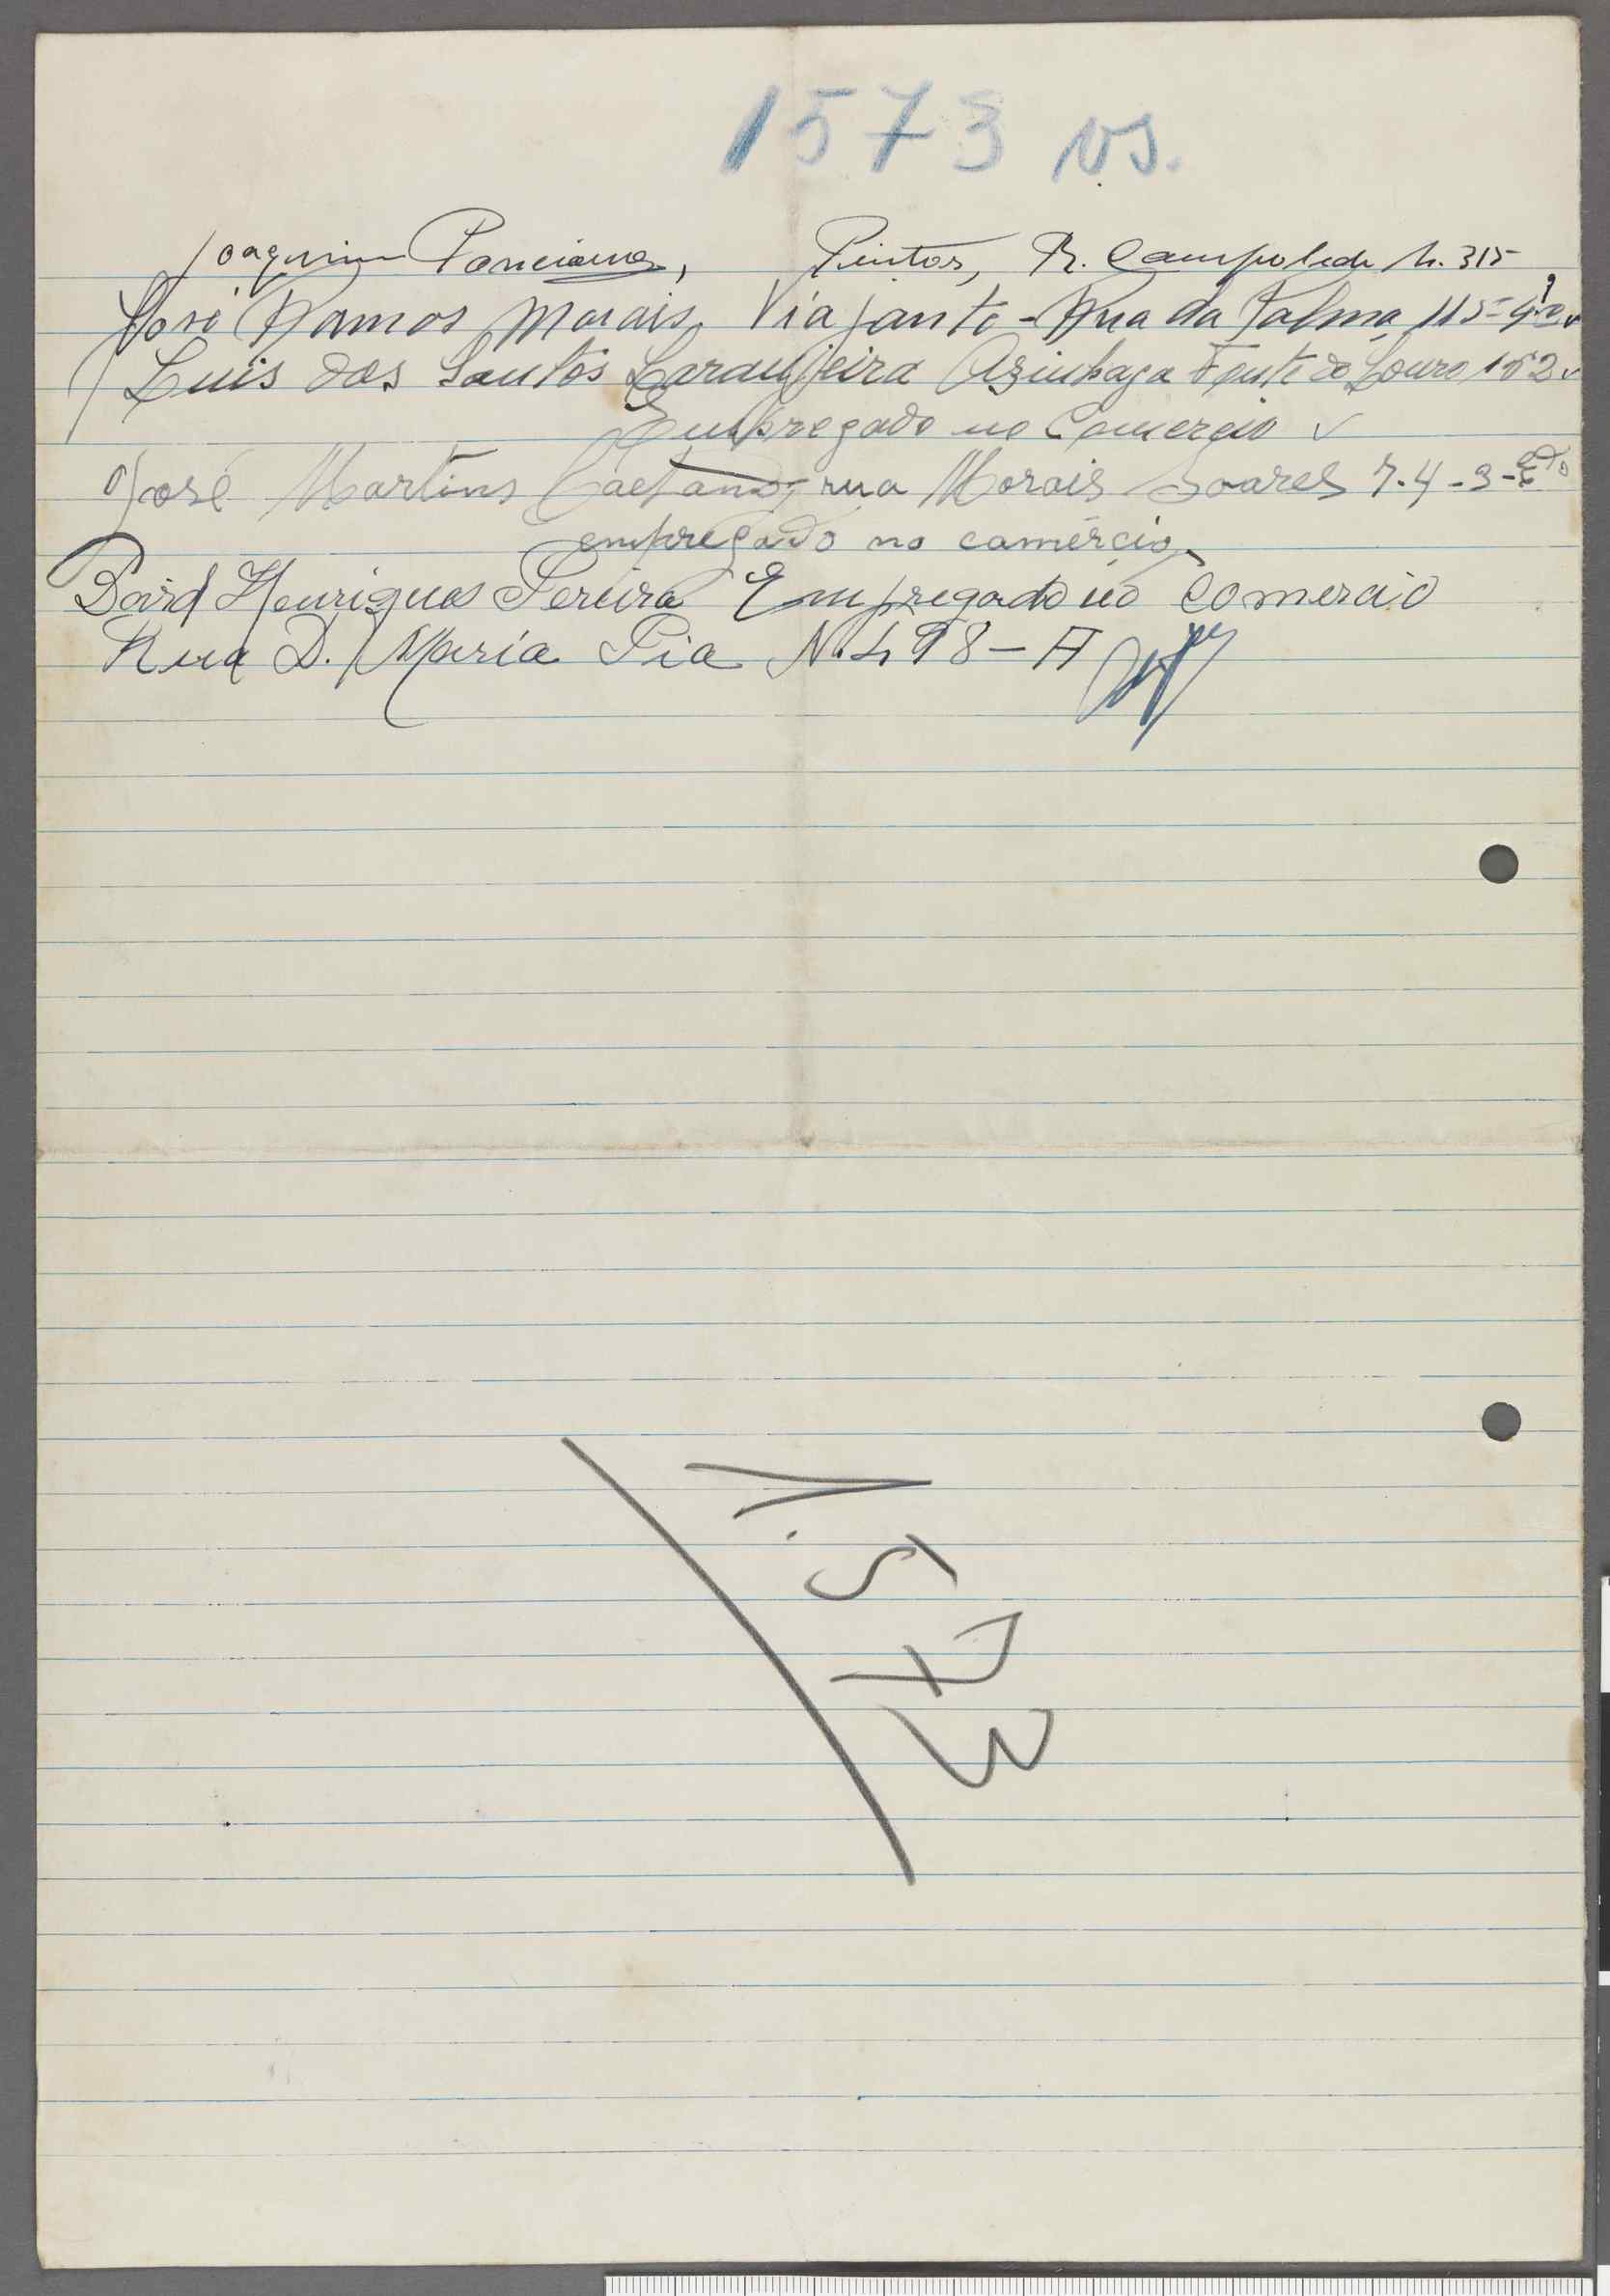 1573 vs.
Joaquim Ponciano, Pintor, R. Campolide N. 315
José Ramos Morais, Viajante - Rua da Palma, 115-4º
Luis dos Santos Laranjeira Azinhaga Fonte do Louro 162
Empregado no Comercio
José Martins Caetano, rua Morais Soares 7-4-3-
empregado no comércio,
David Henriques Pereira Empregado no Comercio
Rua D. Maria Pia N. 498-A
1573